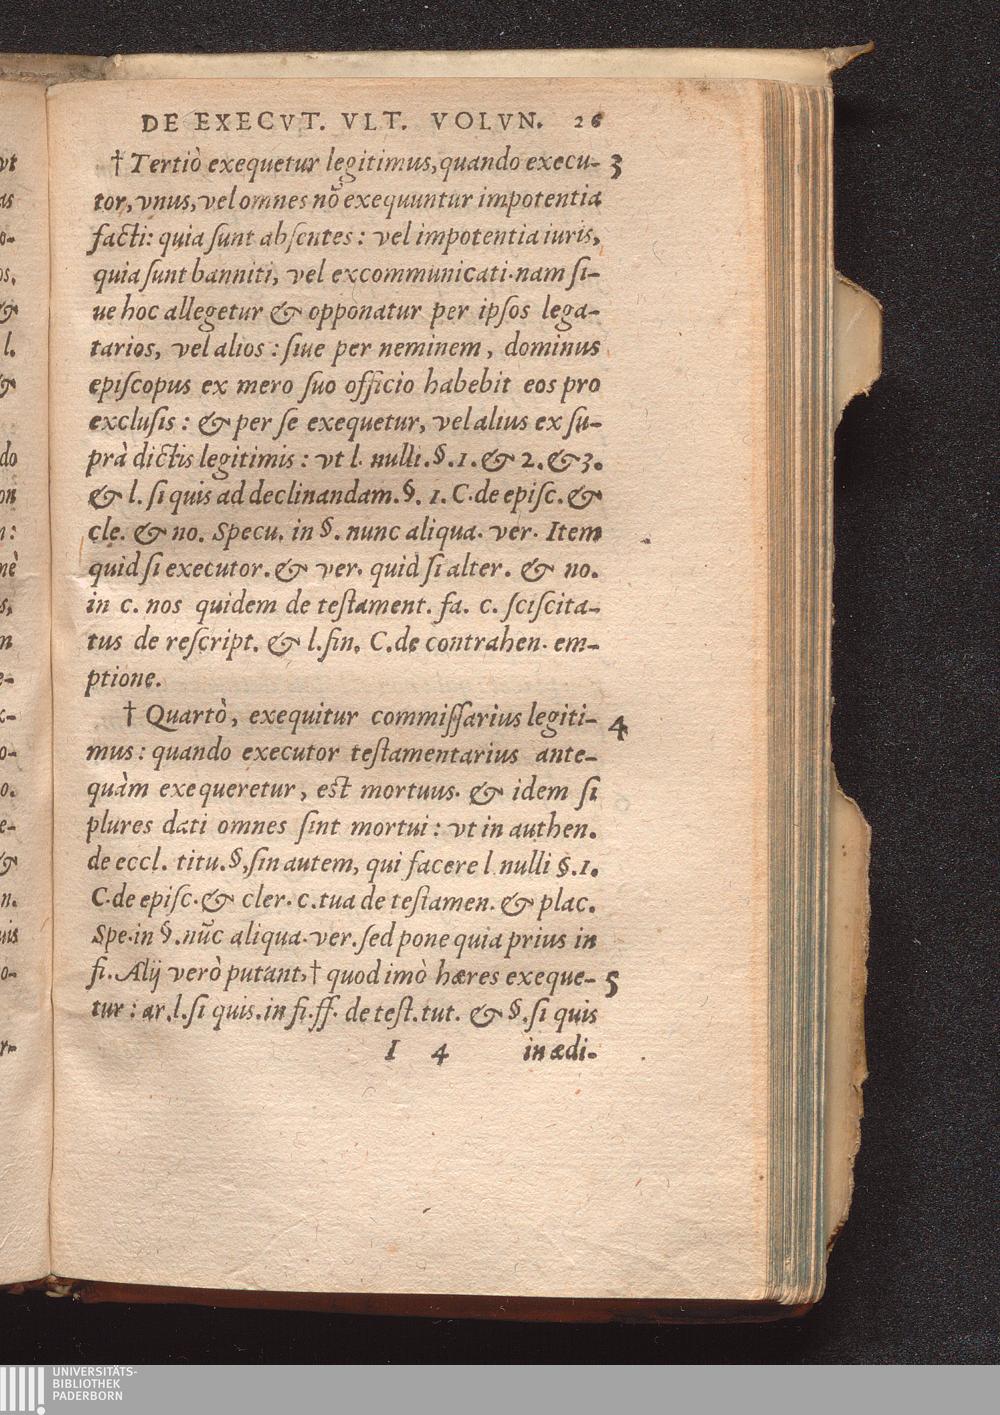 DE EXECVT. VLT. VOLVN. 26
† Tertiò exequetur legitimus, quando execu- 3
tor, vnus, vel omnes nõ exequuntur impotentia
facti: quia ſunt abſentes: vel impotentia iuris,
quia ſunt banniti, vel excommunicati. nam ſi-
ue hoc allegetur & opponatur per ipſos lega-
tarios, vel alios: ſiue per neminem, dominus
epiſcopus ex mero ſuo officio habebit eos pro
excluſis: & per ſe exequetur, vel alius ex ſu-
prà dictis legitimis: vt l. nulli. §. 1. & 2. & 3.
& l. ſi quis ad declinandam. §. 1. C. de epiſc. &
cle. & no. Specu. in §. nunc aliqua. ver. Item
quid ſi executor. & ver. quid ſi alter. & no.
in c. nos quidem de teſtament. fa. c. ſciſcita-
tus de reſcript. & l. fin. C. de contrahen. em-
ptione.
† Quartò, exequitur commiſſarius legiti- 4
mus: quando executor teſtamentarius ante-
quàm exequeretur, est mortuus. & idem ſi
plures dati omnes ſint mortui: vt in authen.
de eccl. titu. §, ſin autem, qui facere l nulli §. 1.
C. de epiſc. & cler. c. tua de teſtamen. & plac.
Spe. in §. nũc aliqua. ver. ſed pone quia prius in
fi. Alij verò putant, † quod imò hæres exeque- 5
tur: ar. l. ſi quis. in fi. ff. de teſt. tut. & §. ſi quis
I 4 in ædi-
vt
as
o-
os,
&
l.
&
do
on
n:
nè
s,
n
e-
x-
o-
o.
e-
&
n.
uis
o-
r-
UNIVERSITÄTS-
BIBLIOTHEK
PADERBORN